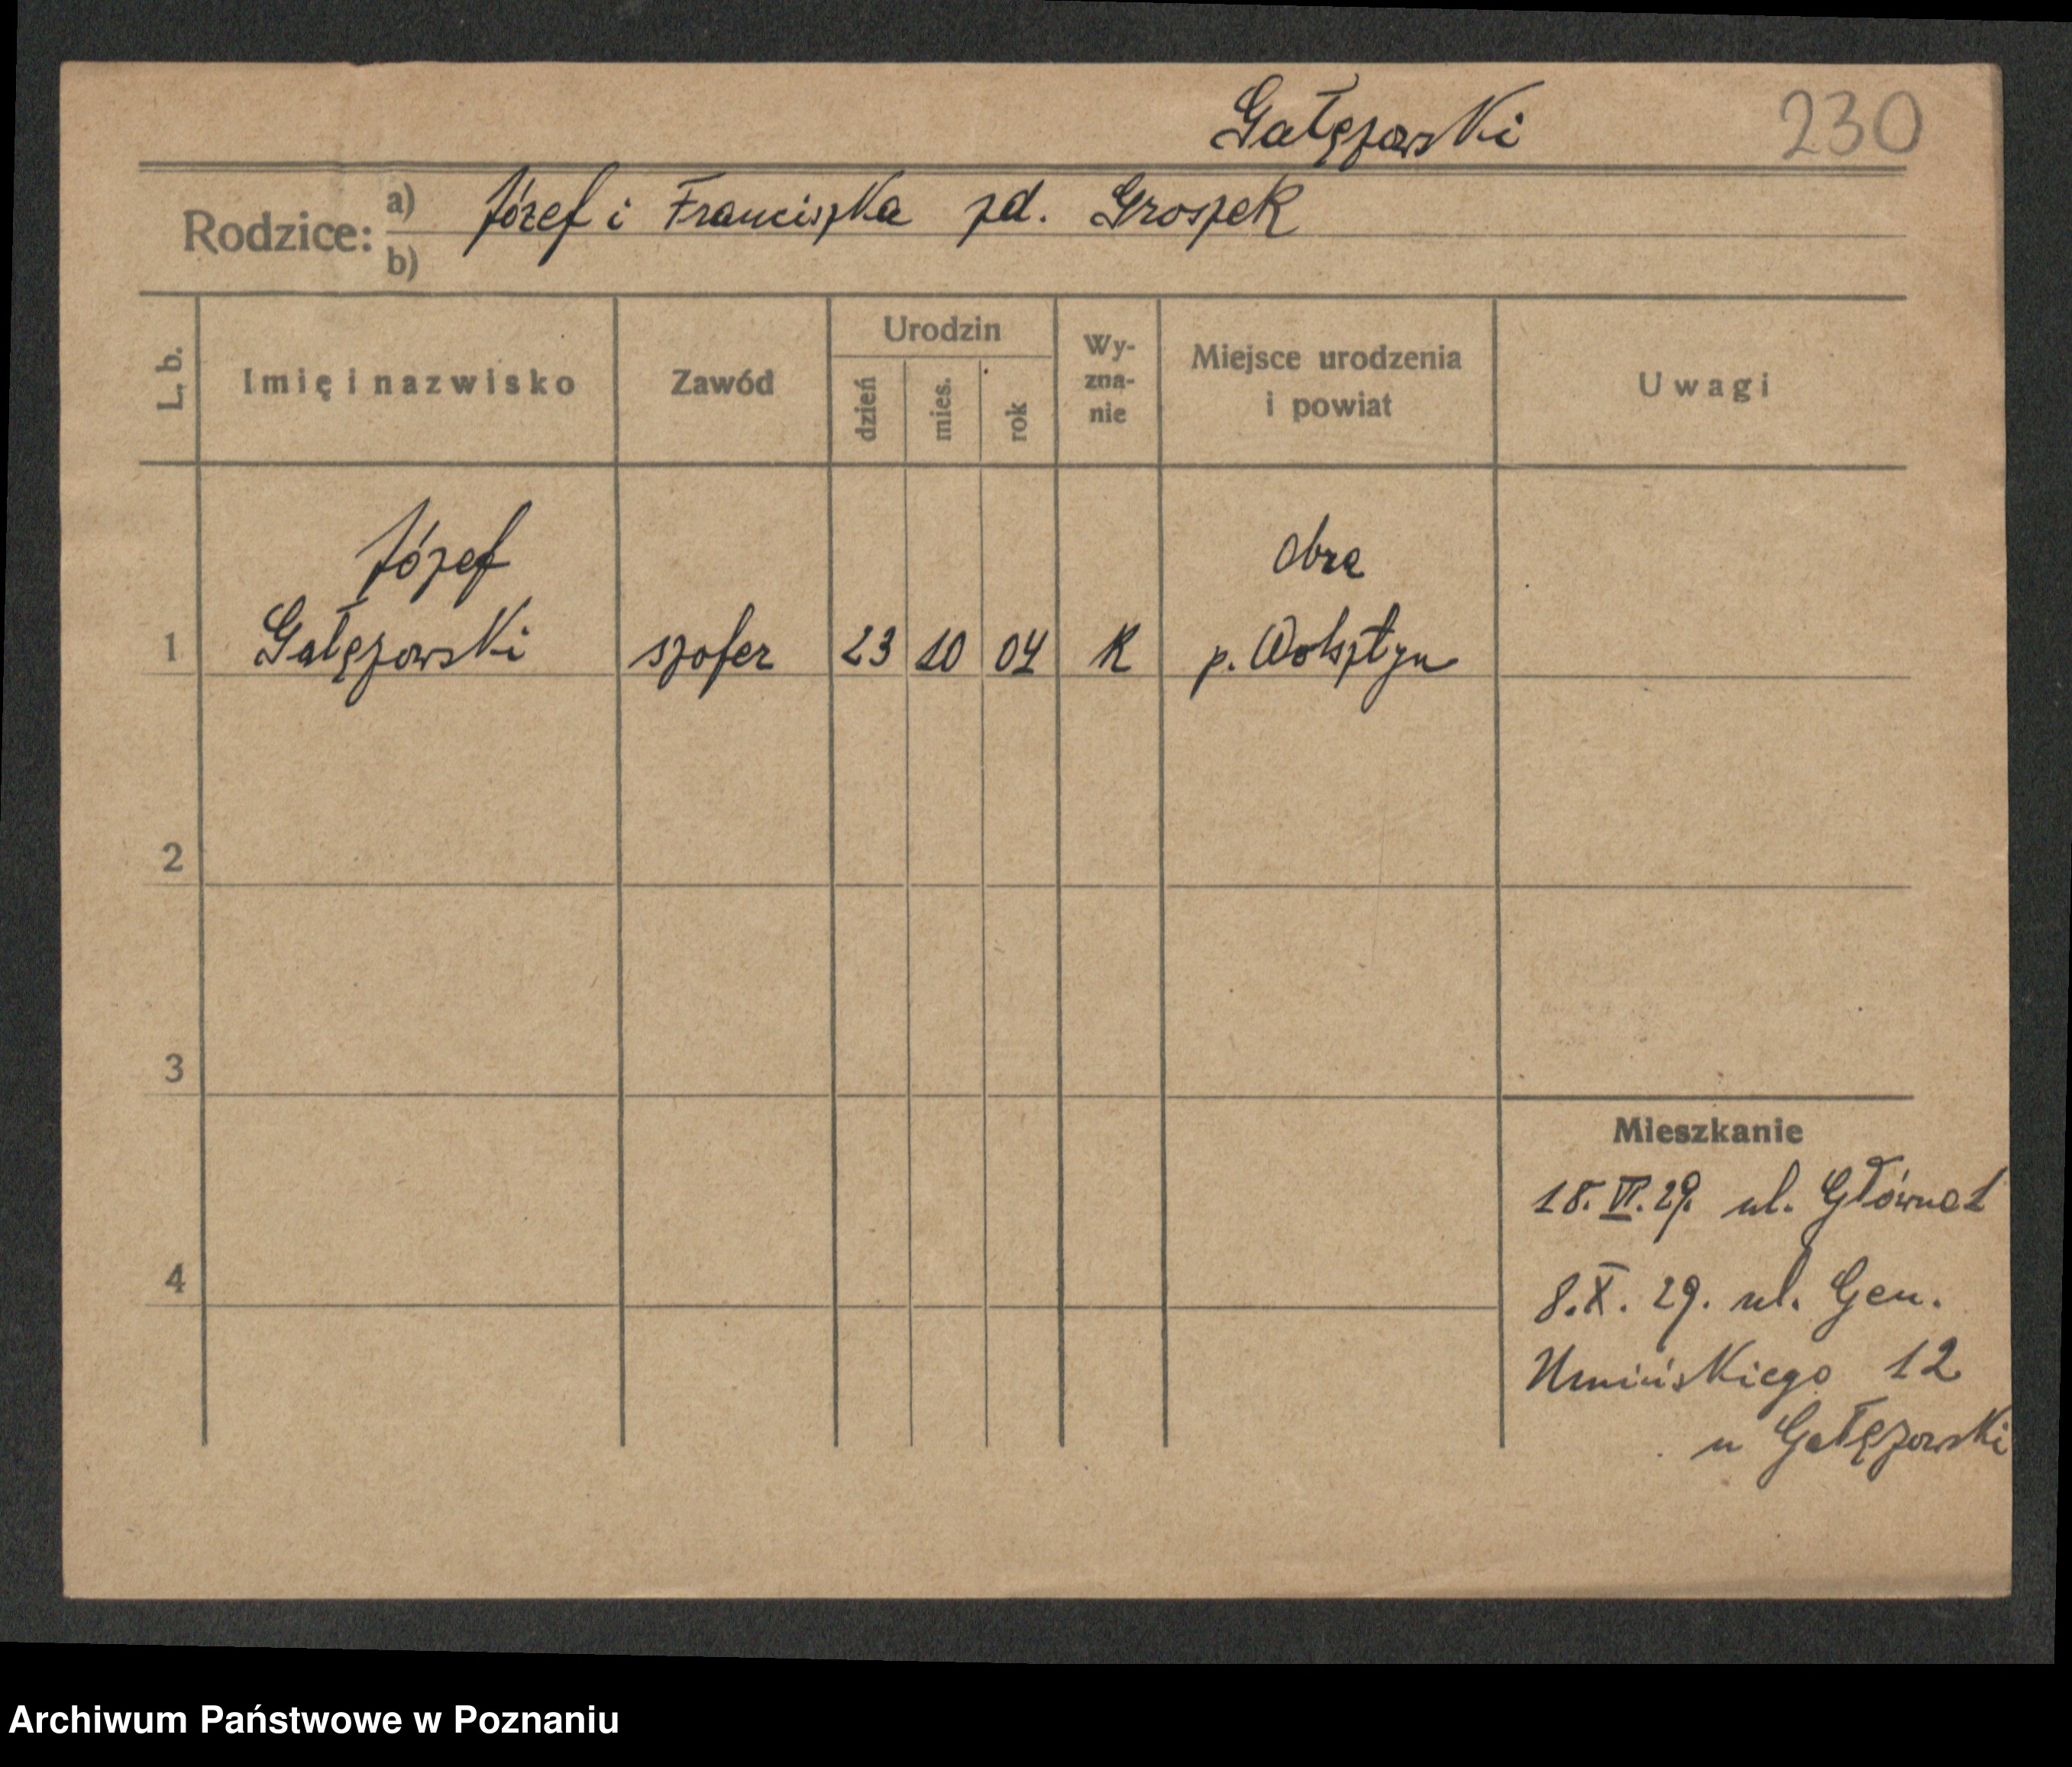 Gałęzowski 230
Rodzice: a) Józef i Franciszka zd. Groszek
b)
L. b. Imię i nazwisko Zawód Urodzin dzień mies. rok Wy-zna-nie Miejsce urodzenia i powiat Uwagi
Józef Obra
1 Gałęzowski szofer 23 10 04 K p. Wolsztyn
2
3
Mieszkanie
18. VI. 29. ul. Główna 1
4
8. X. 29. ul. Gen.
Umińskiego 12
u Gałęzowski
Archiwum Państwowe w Poznaniu